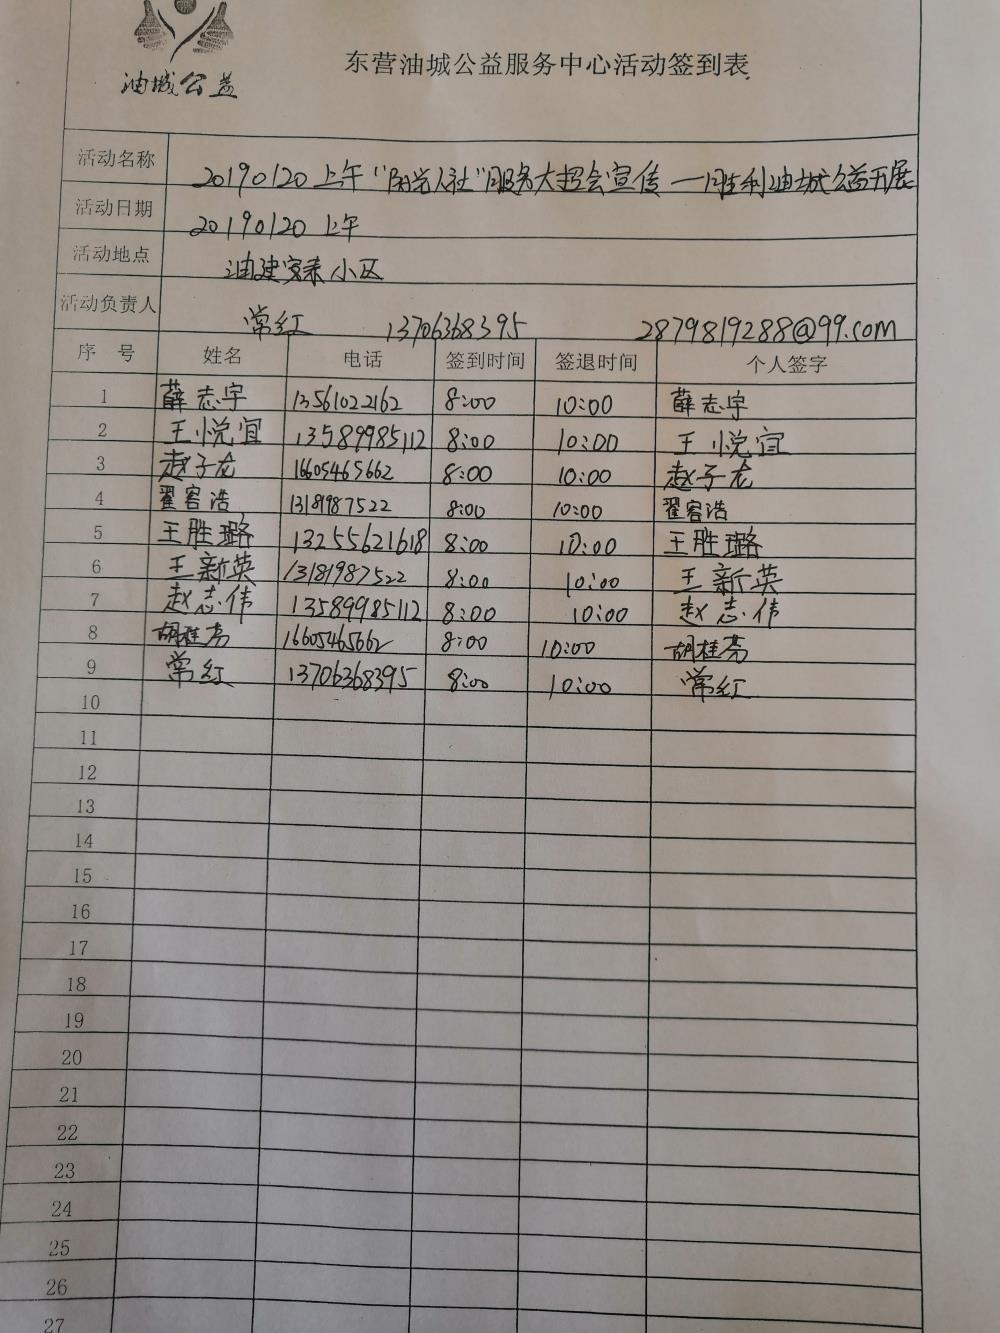 油城公益
东营油城公益服务中心活动签到表
活动名称 20190120上午"阳光人社"服务大提会宣传——胜利油城公益开展
活动日期 20190120上午
活动地点 油建安泰小区
活动负责人 常红 13706368395 2879819288@99.com
序号 姓名 电话 签到时间 签退时间 个人签字
1 薛志宇 13561022162 8:00 10:00 薛志宇
2 王悦宜 13589985112 8:00 10:00 王悦宜
3 赵子龙 16605465662 8:00 10:00 赵子龙
4 翟客浩 13181987522 8:00 10:00 翟客浩
5 王胜璐 13255621618 8:00 10:00 王胜璐
6 王新英 13181987522 8:00 10:00 王新英
7 赵志伟 13589985112 8:00 10:00 赵志伟
8 胡桂芳 16605465662 8:00 10:00 胡桂芳
9 常红 13706368395 8:00 10:00 常红
10
11
12
13
14
15
16
17
18
19
20
21
22
23
24
25
26
27